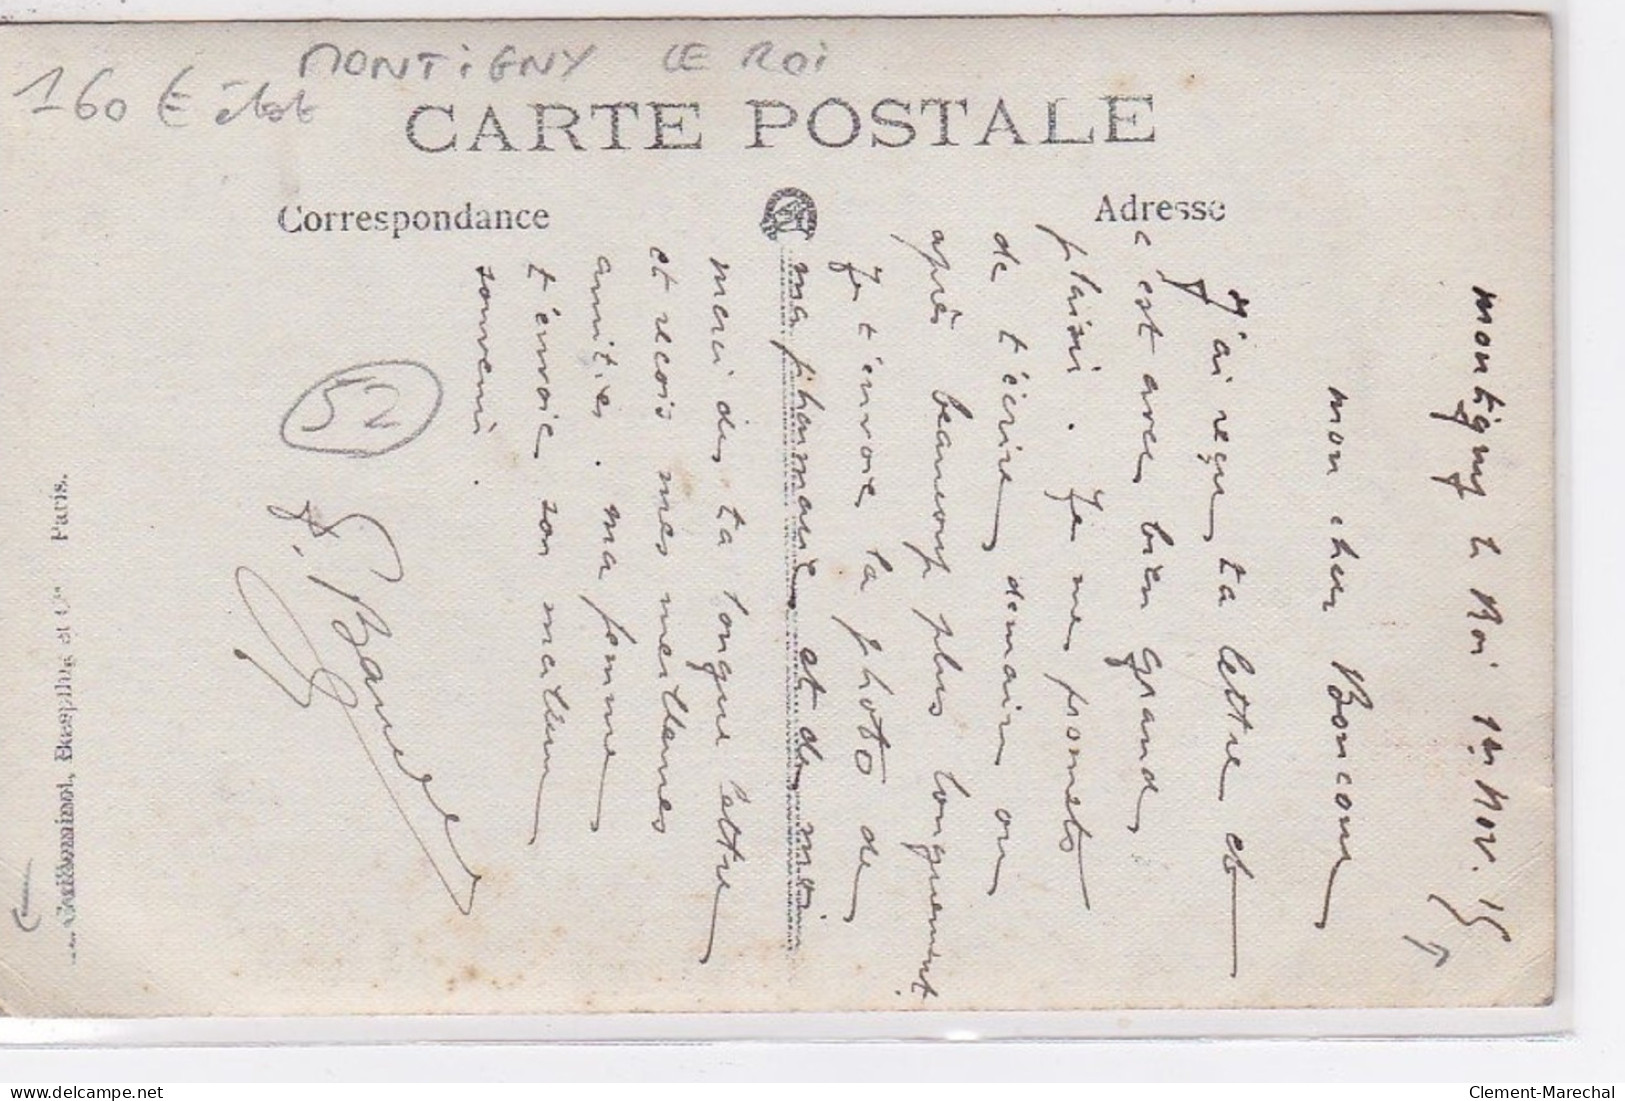 MONTIGNY LE ROI
160 € état
CARTE POSTALE
Correspondance
Adresse
Montigny le Roi 1er Nov. 15
Mon cher Boncour
J'ai reçu ta lettre et
c'est avec bien grand
plaisir. Je me promets
de t'écrire demain ou
après beaucoup plus longuement.
Je t'envoie la photo de
ma pharmacie et de moi
merci de ta longue lettre
et reçois mes meilleures
amitiés. ma femme
t'envoie son meilleur
souvenir.
52
Paris.
Clement-Marechal
delcampe.net